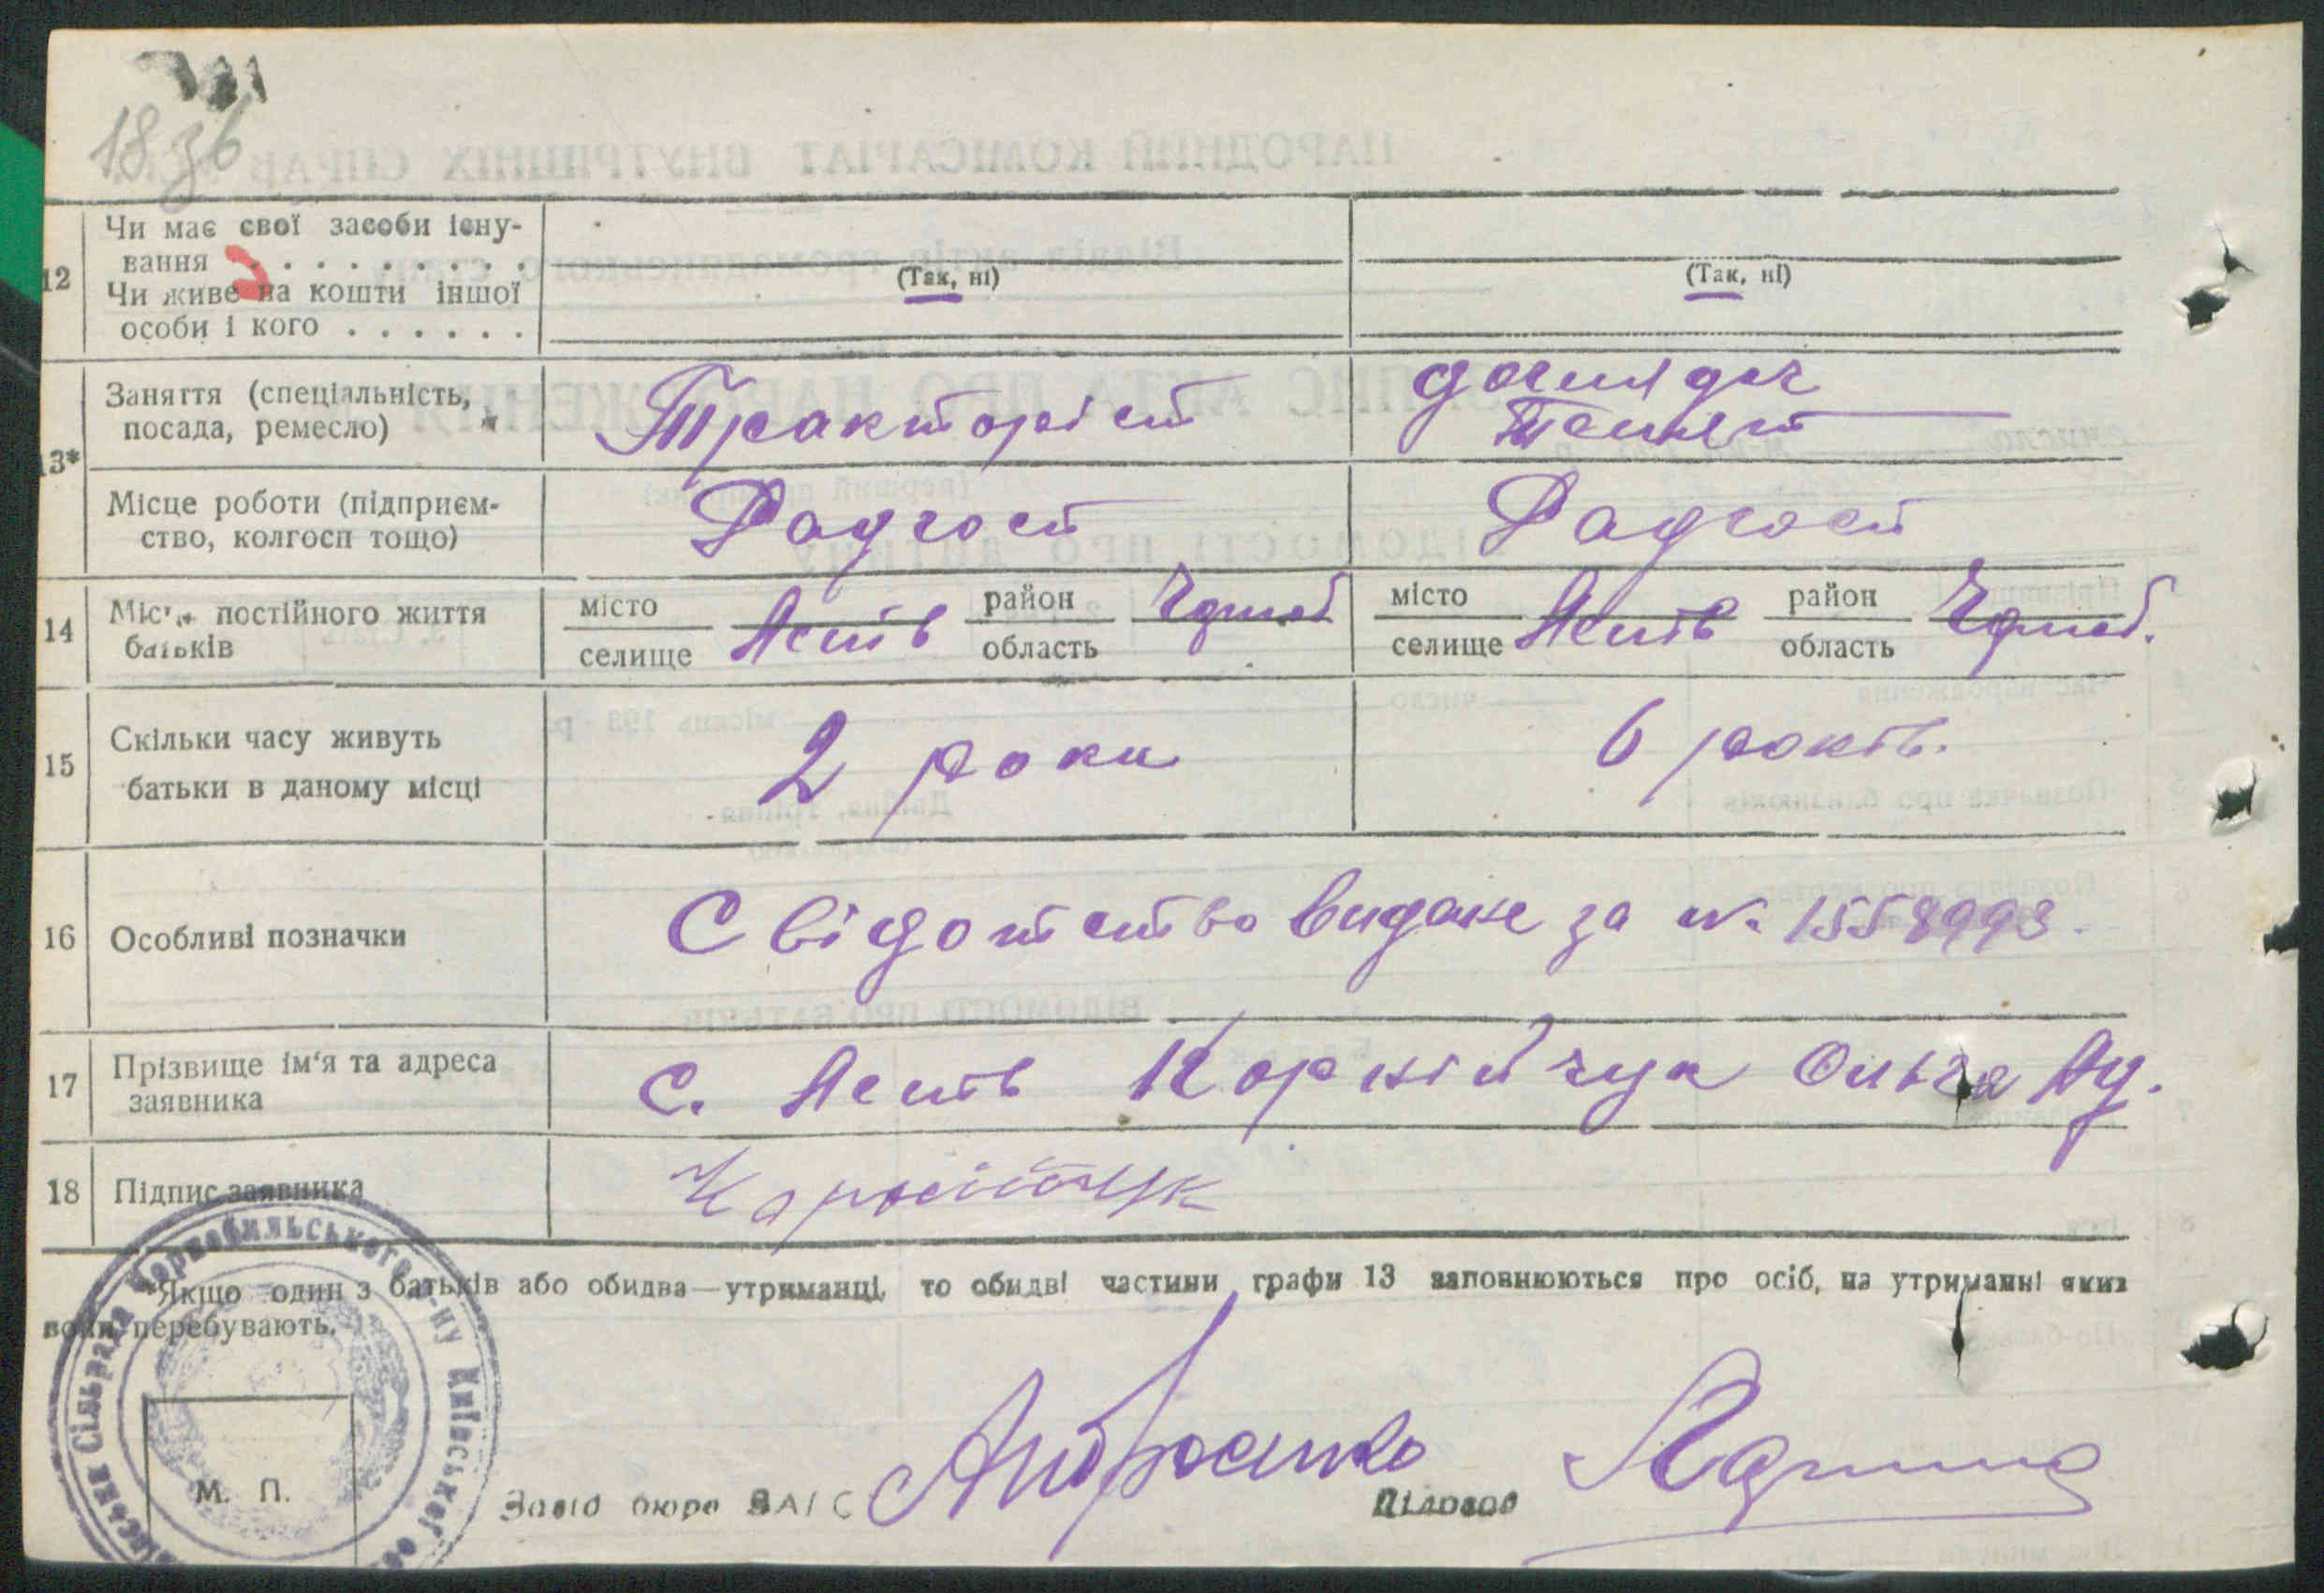 18 зв
12 Чи має свої засоби існу-
вання . . . . . . . . . (Так, ні) (Так, ні)
Чи живе на кошти іншої
особи і кого . . . . . .
13* Заняття (спеціальність,
посада, ремесло) Тракторіст доглядач
телят
Місце роботи (підприєм-
ство, колгосп тощо) Радгосп Радгосп
14 Місце постійного життя
батьків місто селище район область місто селище район область
15 Скільки часу живуть
батьки в даному місці 2 роки 6 років.
16 Особливі позначки Свідотство видане за №. 1558993.
17 Прізвище ім'я та адреса
заявника С. Корнійчук Ольга
18 Підпис заявника Корнійчук
*Якщо один з батьків або обидва—утриманці, то обидві частини графи 13 заповнюються про осіб, на утриманні яких
вони перебувають.
Сільрада Чорнобильського р-ну Київської
М. П.
Завід бюро ЗАГС Діловод